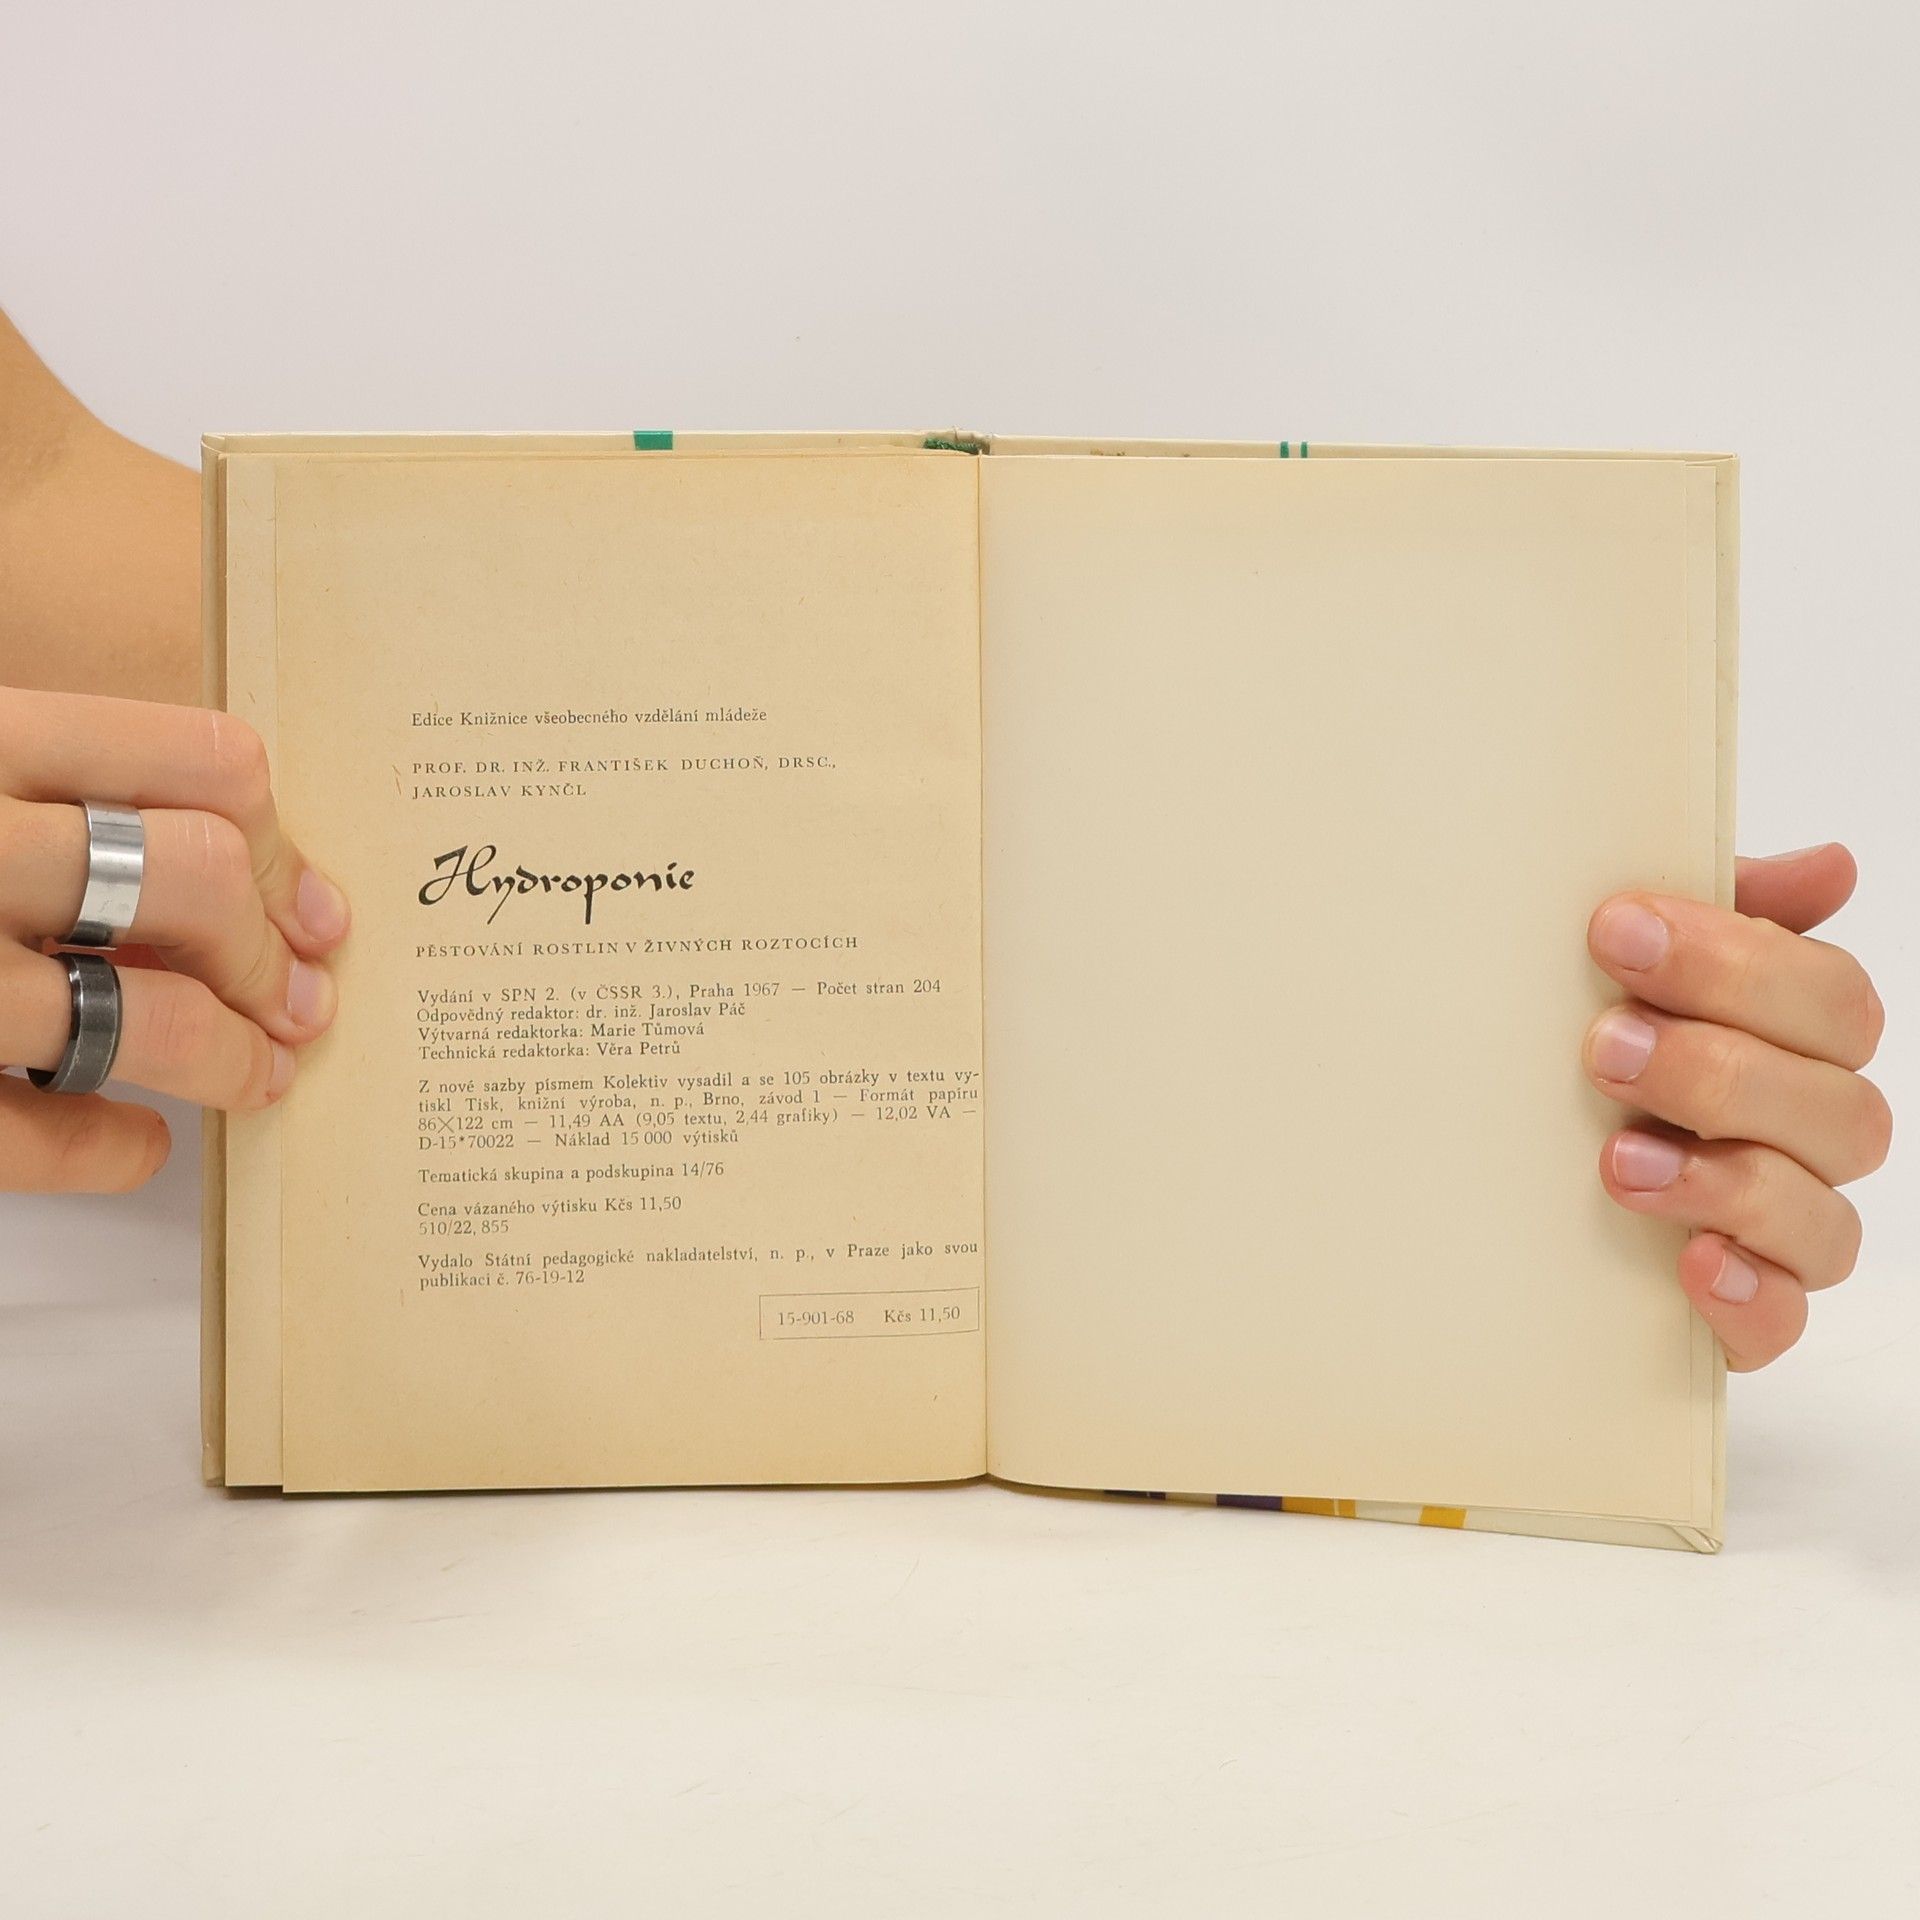 Edice Knižnice všeobecného vzdělání mládeže
PROF. DR. INŽ. FRANTIŠEK DUCHOŇ, DRSC.,
JAROSLAV KYNČL
Hydroponie
PĚSTOVÁNÍ ROSTLIN V ŽIVNÝCH ROZTOCÍCH
Vydání v SPN 2. (v ČSSR 3.), Praha 1967 — Počet stran 204
Odpovědný redaktor: dr. inž. Jaroslav Páč
Výtvarná redaktorka: Marie Tůmová
Technická redaktorka: Věra Petrů
Z nové sazby písmem Kolektiv vysadil a se 105 obrázky v textu vy-
tiskl Tisk, knižní výroba, n. p., Brno, závod 1 — Formát papíru
86×122 cm — 11,49 AA (9,05 textu, 2,44 grafiky) — 12,02 VA —
D-15*70022 — Náklad 15 000 výtisků
Tematická skupina a podskupina 14/76
Cena vázaného výtisku Kčs 11,50
510/22, 855
Vydalo Státní pedagogické nakladatelství, n. p., v Praze jako svou
publikaci č. 76-19-12
15-901-68 Kčs 11,50